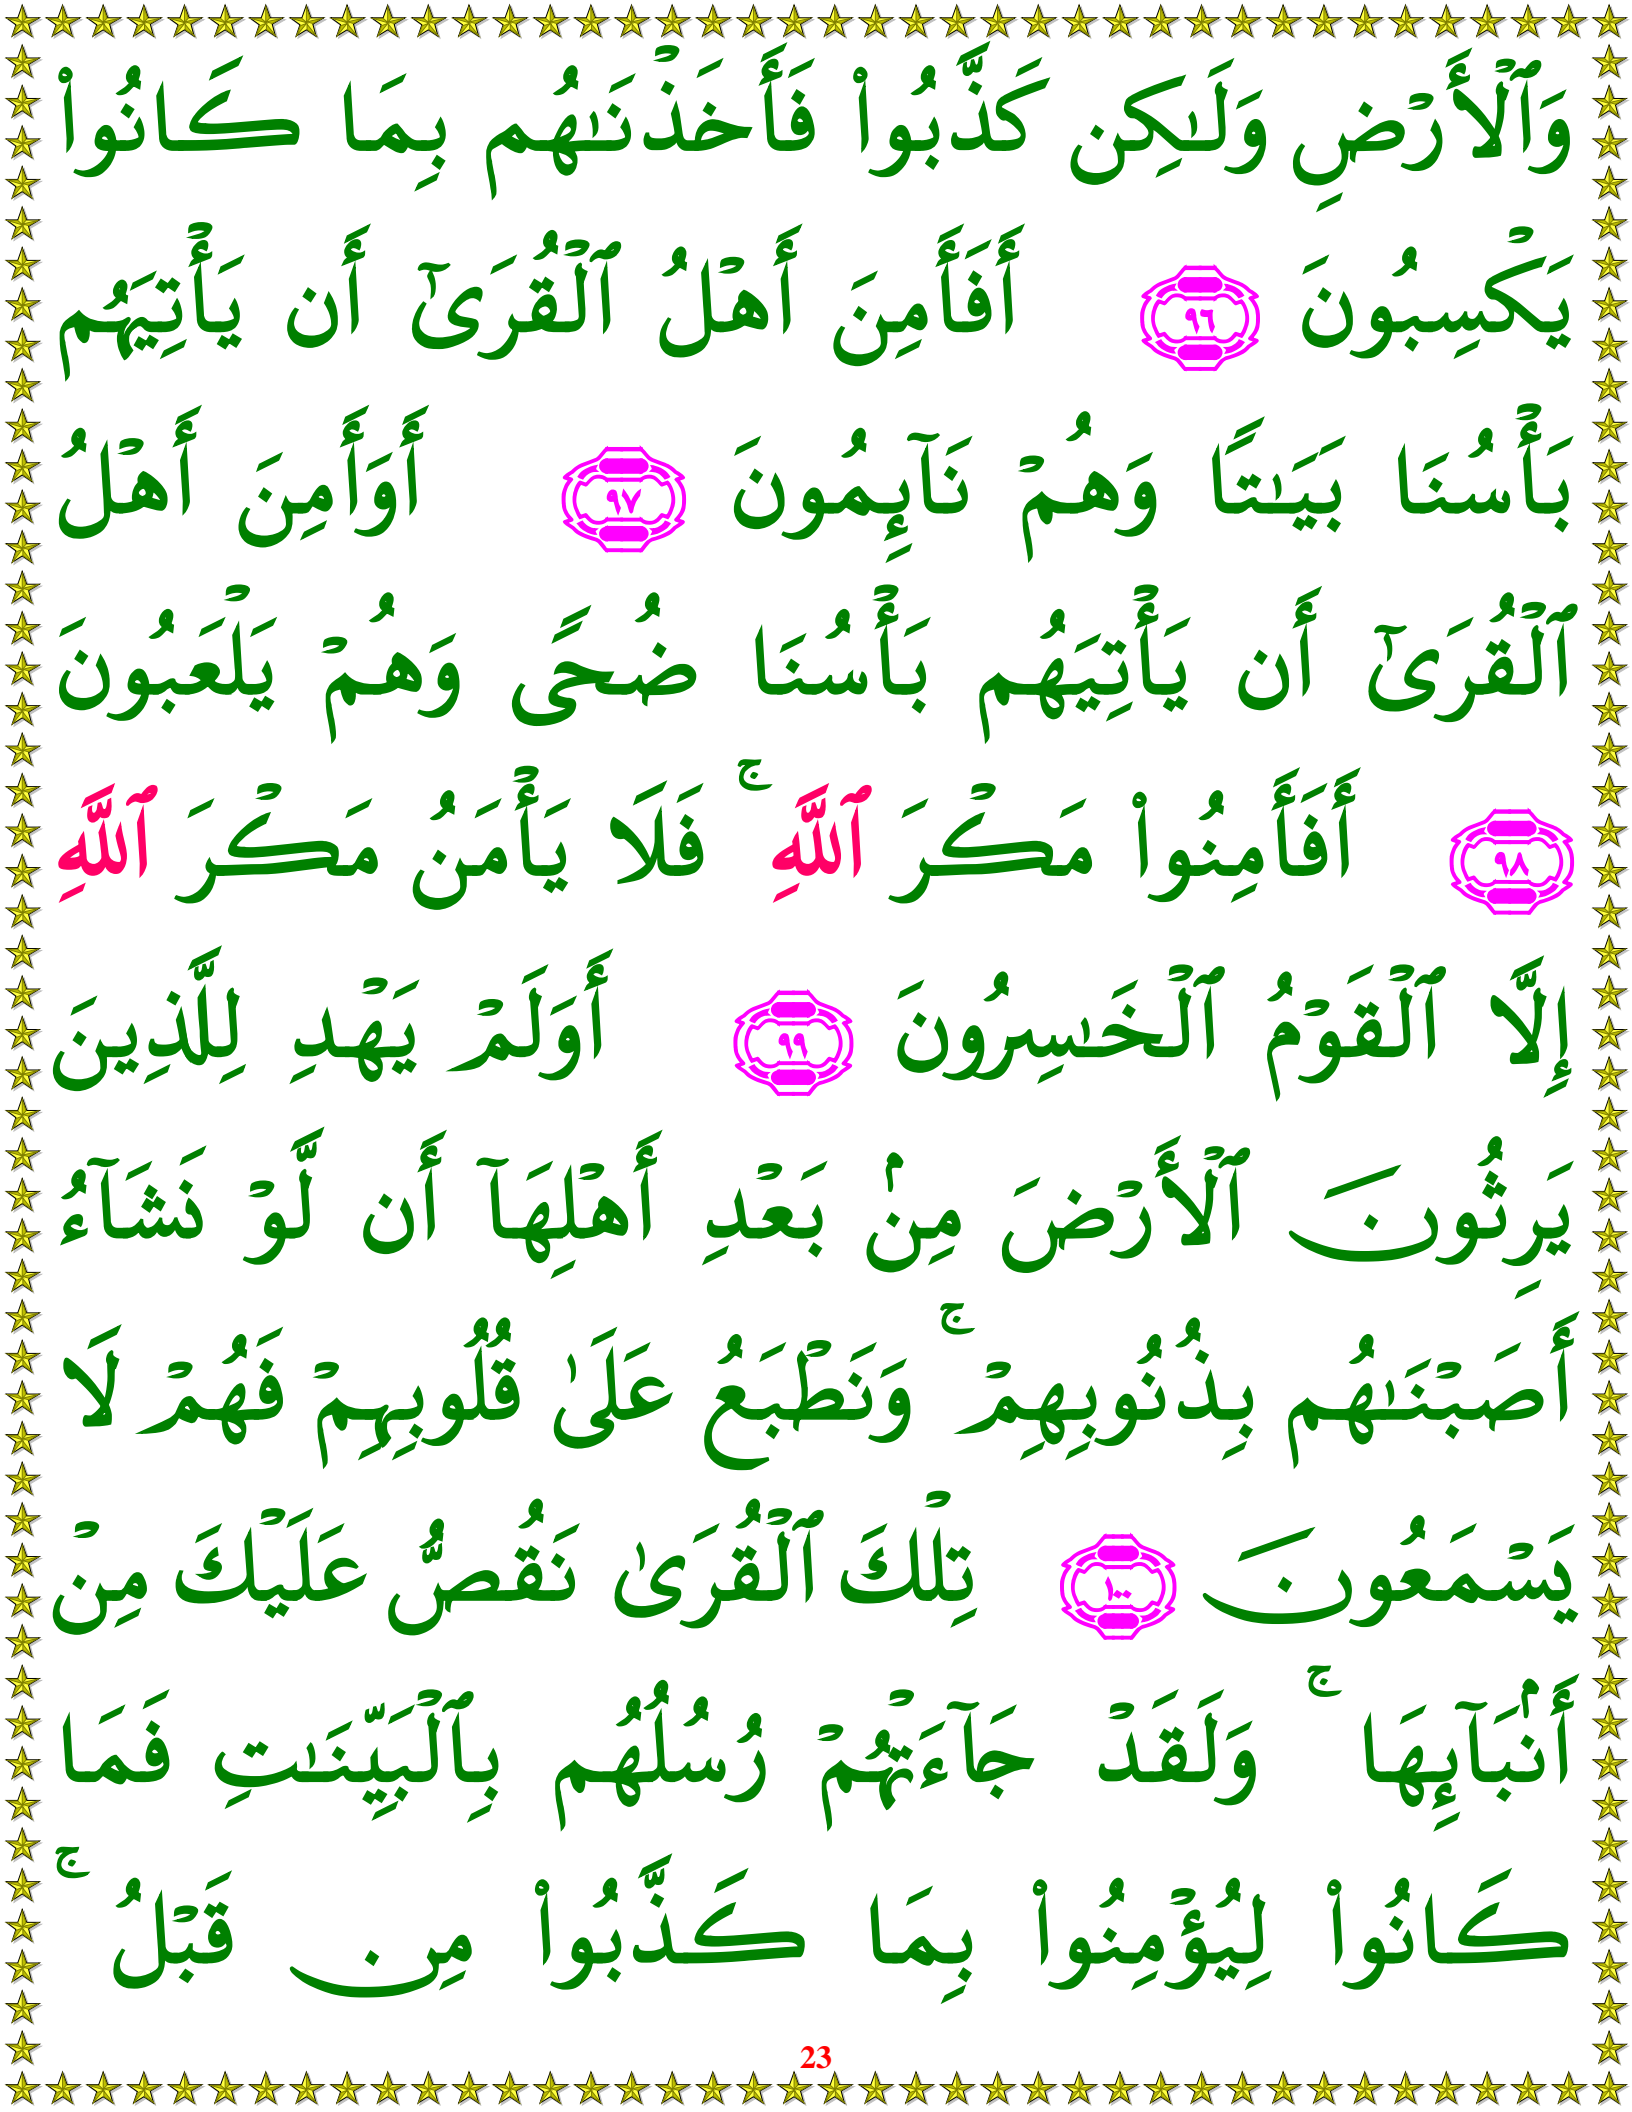 وَٱلْأَرْضِ وَلَـٰكِن كَذَّبُوا۟ فَأَخَذْنَـٰهُم بِمَا كَانُوا۟
يَكْسِبُونَ ٩٦ أَفَأَمِنَ أَهْلُ ٱلْقُرَىٰٓ أَن يَأْتِيَهُم
بَأْسُنَا بَيَـٰتًا وَهُمْ نَآئِمُونَ ٩٧ أَوَأَمِنَ أَهْلُ
ٱلْقُرَىٰٓ أَن يَأْتِيَهُم بَأْسُنَا ضُحًى وَهُمْ يَلْعَبُونَ
٩٨ أَفَأَمِنُوا۟ مَكْرَ ٱللَّهِ ۚ فَلَا يَأْمَنُ مَكْرَ ٱللَّهِ
إِلَّا ٱلْقَوْمُ ٱلْخَـٰسِرُونَ ٩٩ أَوَلَمْ يَهْدِ لِلَّذِينَ
يَرِثُونَ ٱلْأَرْضَ مِنۢ بَعْدِ أَهْلِهَآ أَن لَّوْ نَشَآءُ
أَصَبْنَـٰهُم بِذُنُوبِهِمْ ۚ وَنَطْبَعُ عَلَىٰ قُلُوبِهِمْ فَهُمْ لَا
يَسْمَعُونَ ١٠٠ تِلْكَ ٱلْقُرَىٰ نَقُصُّ عَلَيْكَ مِنْ
أَنۢبَآئِهَا ۚ وَلَقَدْ جَآءَتْهُمْ رُسُلُهُم بِٱلْبَيِّنَـٰتِ فَمَا
كَانُوا۟ لِيُؤْمِنُوا۟ بِمَا كَذَّبُوا۟ مِن قَبْلُ ۚ
23